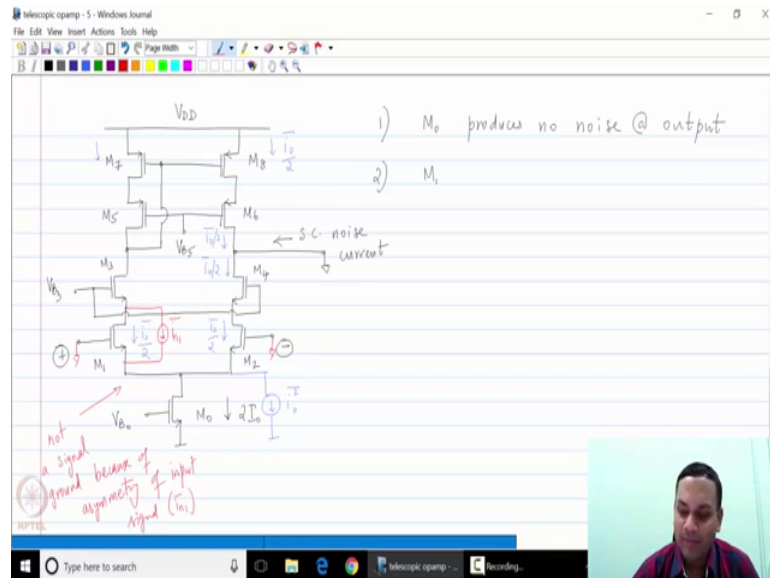 telescopic opamp - 5 - Windows Journal
File Edit View Insert Actions Tools Help
Page Width
B I
VDD
M7
M8
i0/2
M5
M6
VB5
i0/2
← s.c. noise
current
i0/2
M3
M4
VB3
i0/2
in1
i0/2
+
M1
M2
-
VB0
M0
2I0
i0
not
a signal
ground because of
asymmetry of input
signal (in1)
1) M0 produces no noise @ output
2) M1
NPTEL
Type here to search
telescopic opamp - ...
Recording...